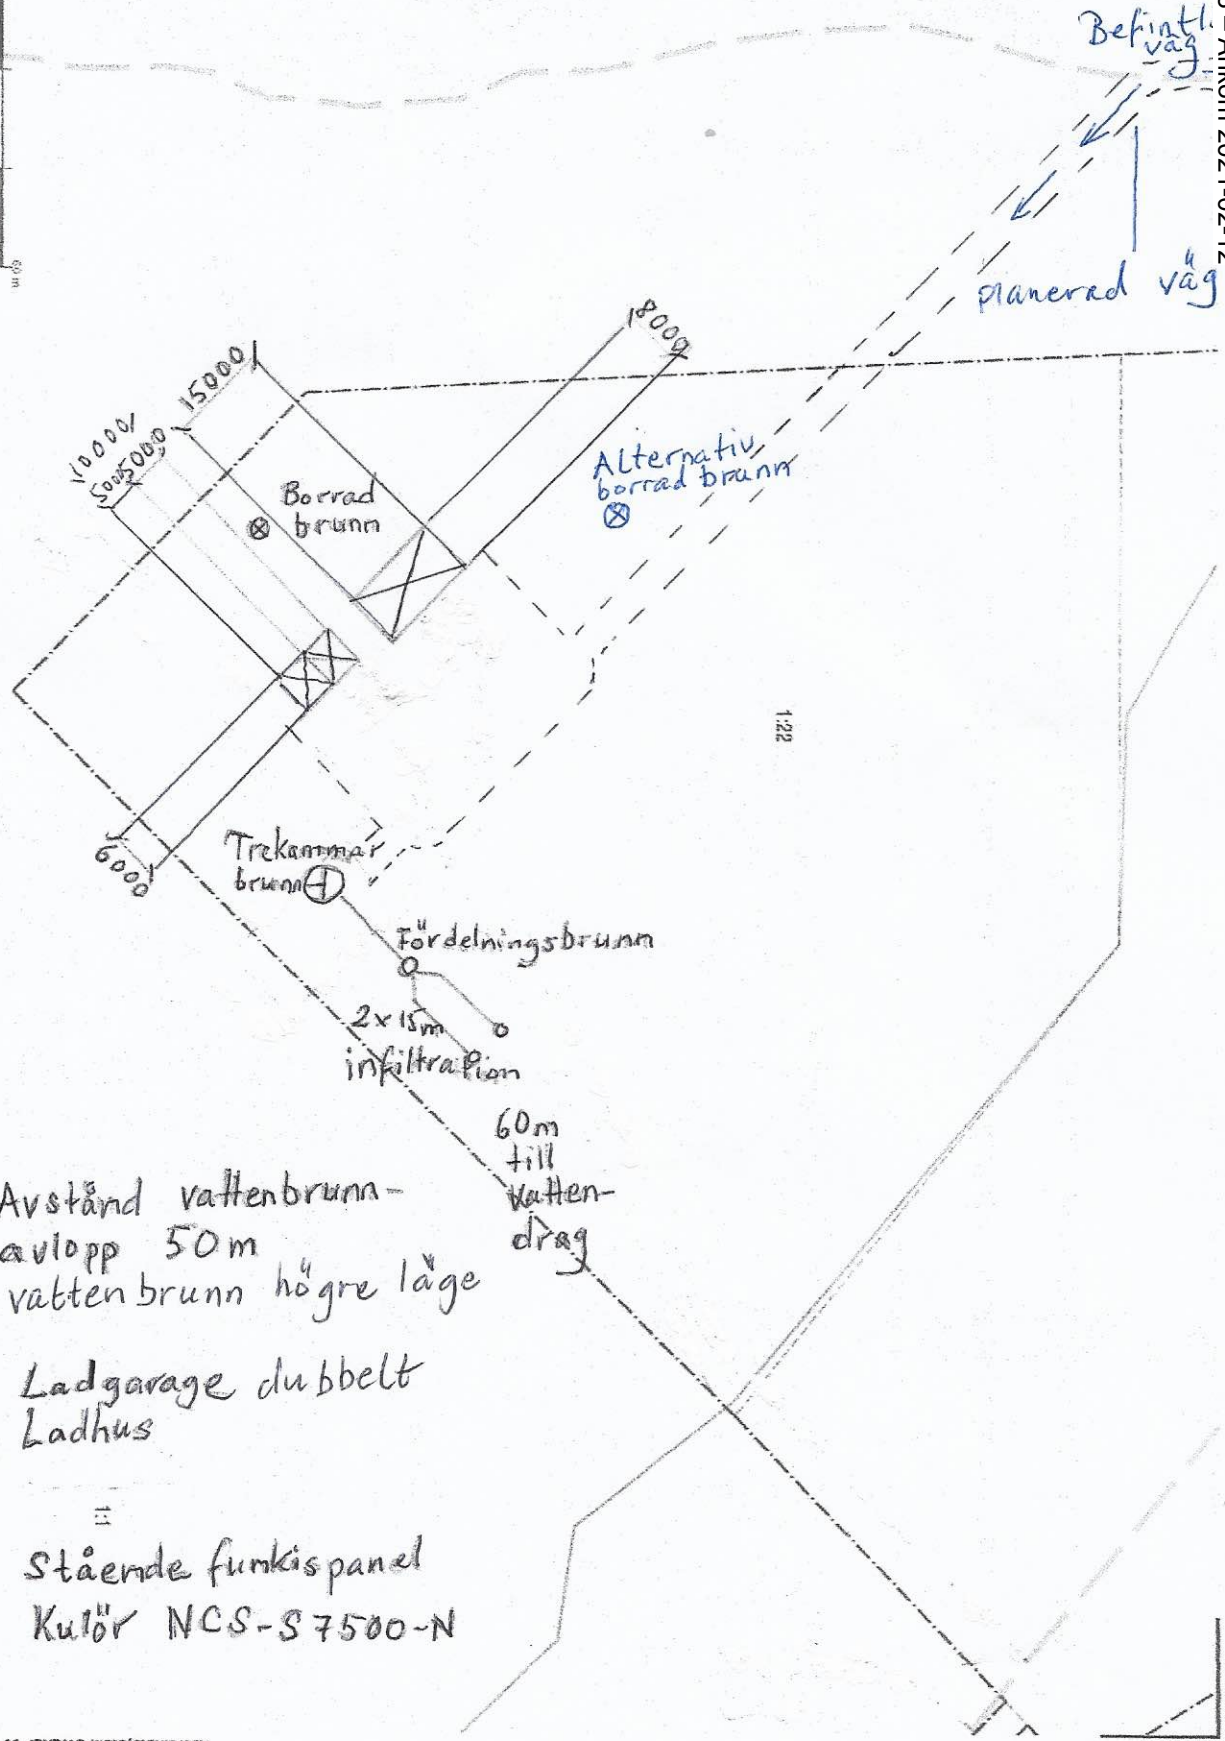 Befintl.
väg
Ankom 2021-02-12
planerad väg
8000
15000
10000
5000
5000
Alternativ
borrad brunn
Borrad
brunn
1:22
6000
Trekammar
brunn
Fördelningsbrunn
2x15m
infiltration
60m
till
vatten-
drag
Avstånd vattenbrunn-
avlopp 50m
vattenbrunn högre läge
Ladgarage dubbelt
Ladhus
1:1
Stående funkispanel
Kulör NCS-S7500-N